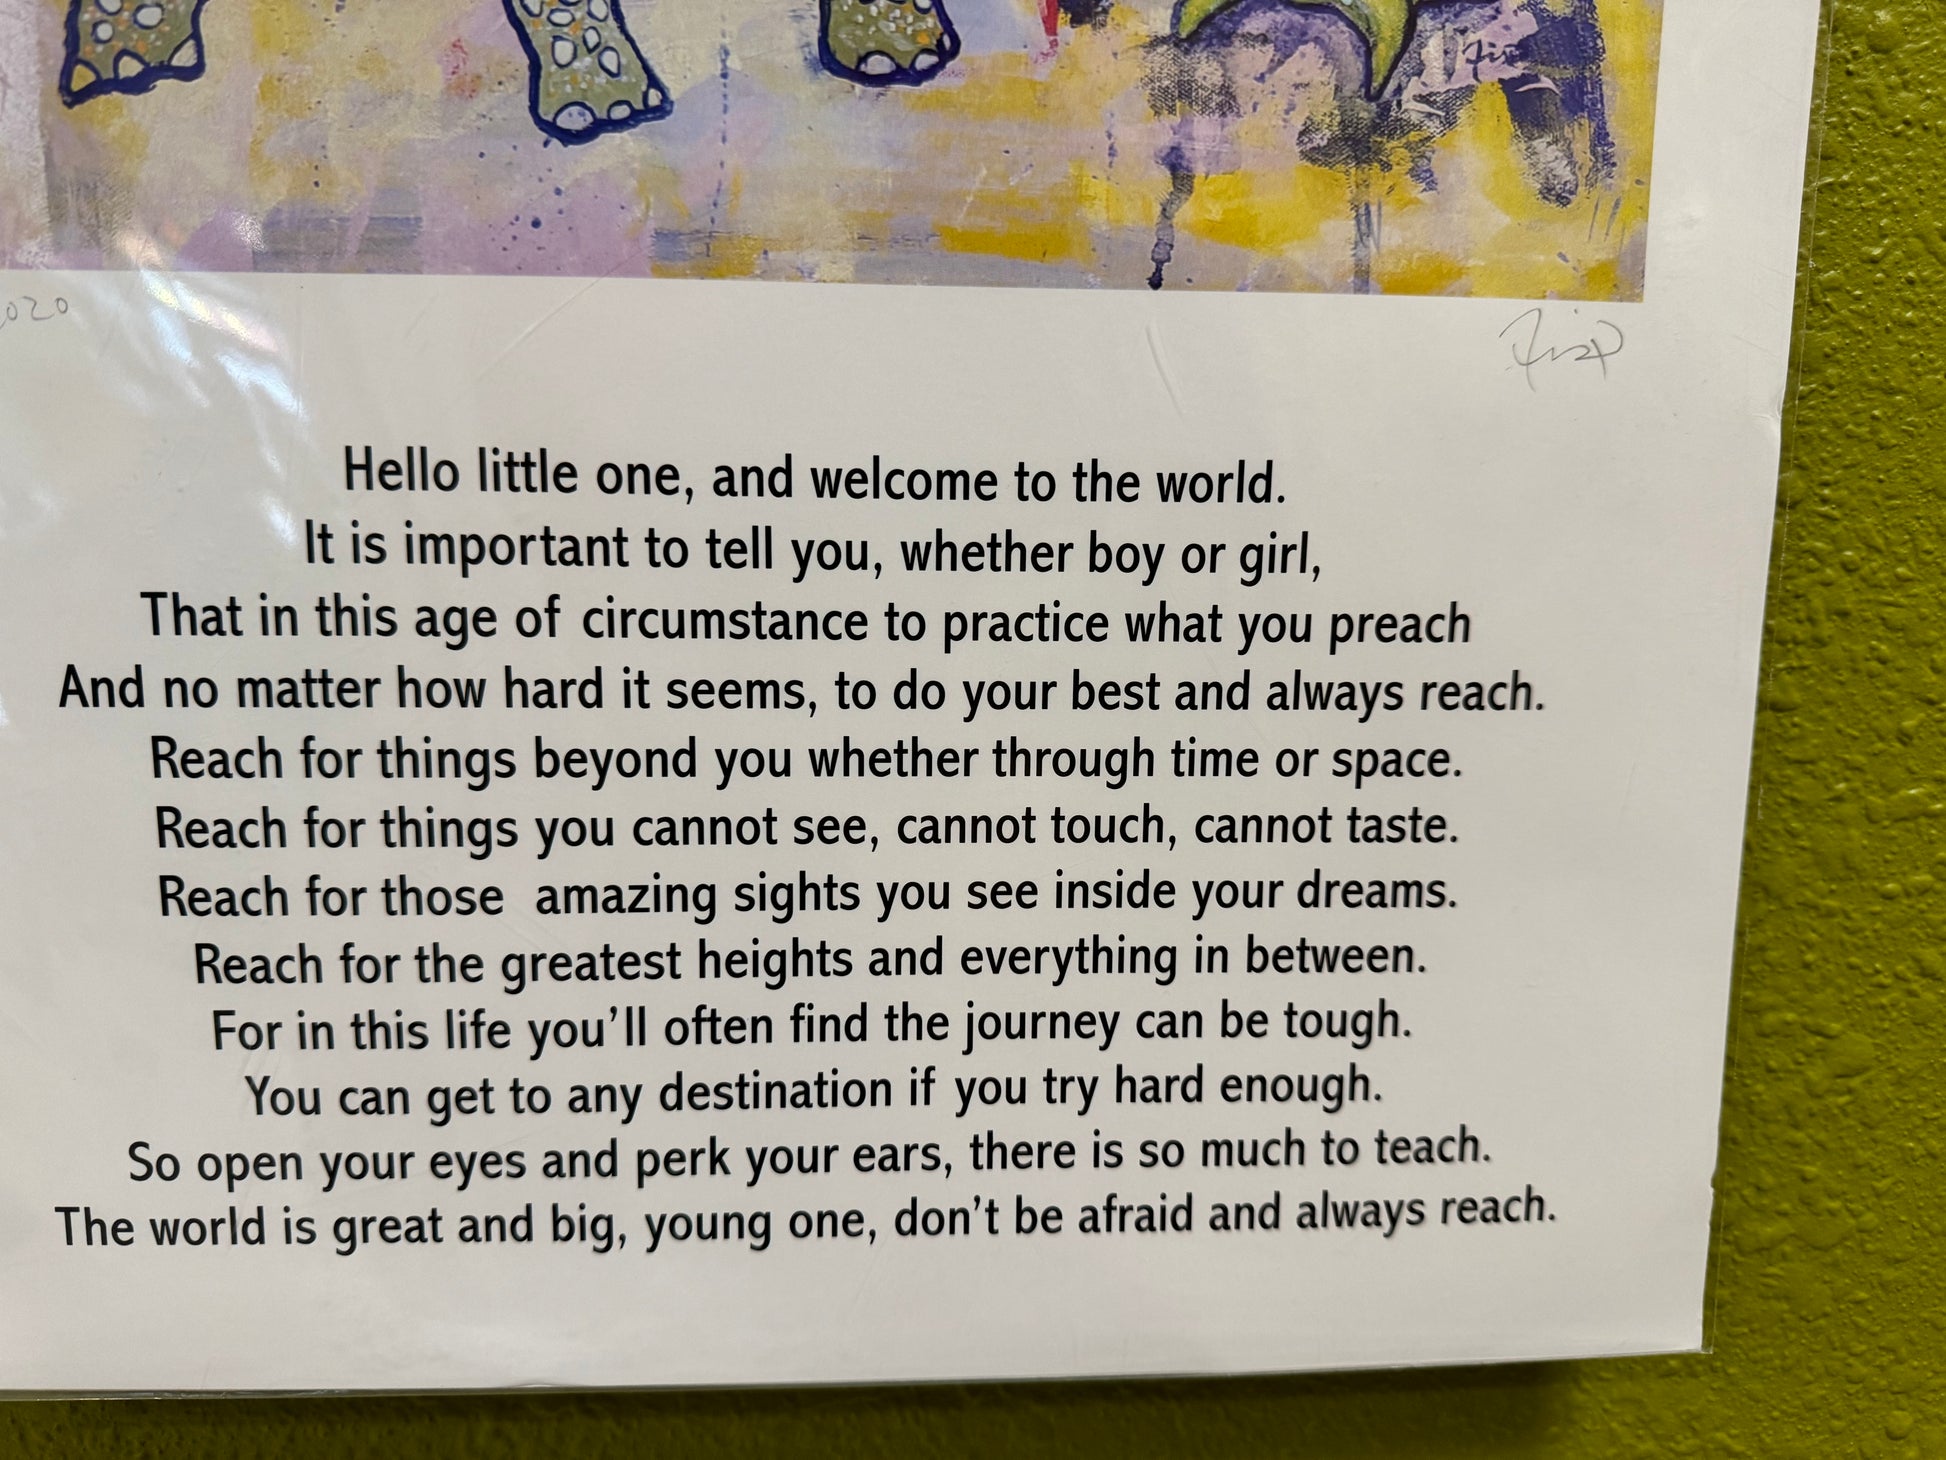 2020
Hello little one, and welcome to the world.
It is important to tell you, whether boy or girl,
That in this age of circumstance to practice what you preach
And no matter how hard it seems, to do your best and always reach.
Reach for things beyond you whether through time or space.
Reach for things you cannot see, cannot touch, cannot taste.
Reach for those  amazing sights you see inside your dreams.
Reach for the greatest heights and everything in between.
For in this life you’ll often find the journey can be tough.
You can get to any destination if you try hard enough.
So open your eyes and perk your ears, there is so much to teach.
The world is great and big, young one, don’t be afraid and always reach.